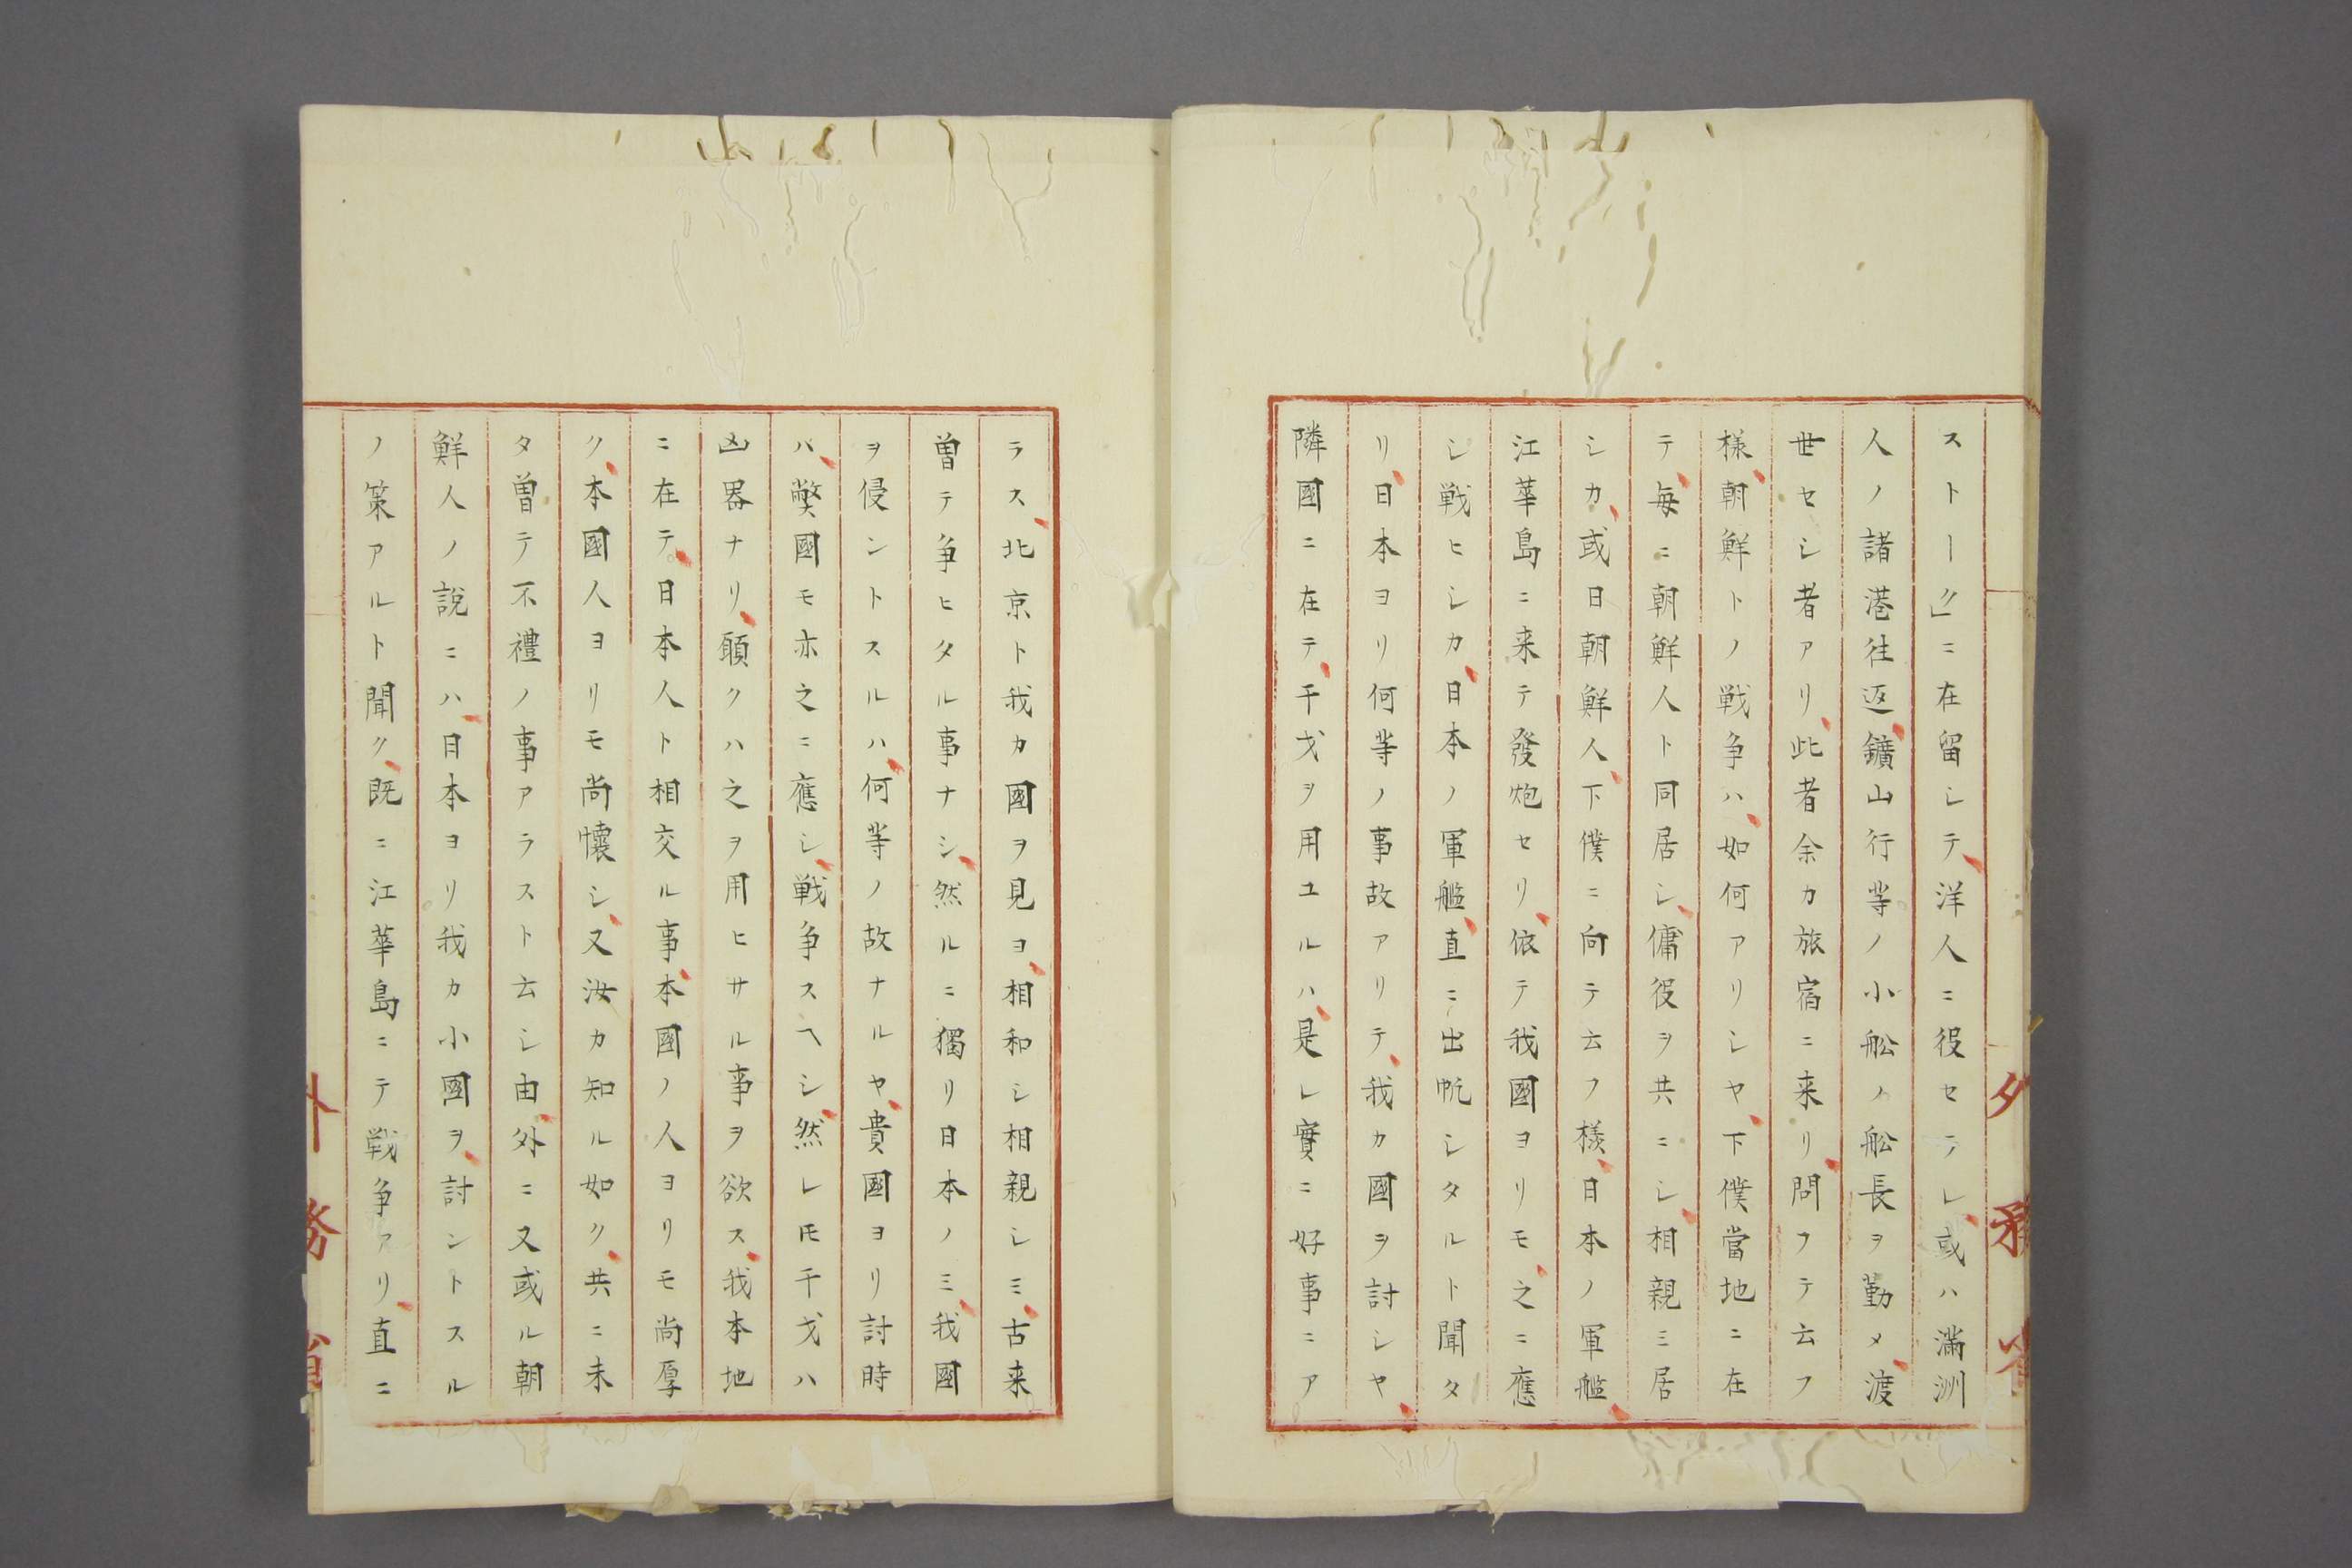 ストーク」ニ在留シテ洋人ニ役セラレ或ハ滿洲
人ノ諸港往返鑛山行等ノ小舩ノ舩長ヲ勤メ渡
世セシ者アリ此者余カ旅宿ニ来リ問フテ云フ
様朝鮮トノ戦争ハ如何アリシヤ下僕當地ニ在
テ毎ニ朝鮮人ト同居シ傭役ヲ共ニシ相親ミ居
シカ或日朝鮮人下僕ニ向テ云フ様日本ノ軍艦
江華島ニ来テ發炮セリ依テ我國ヨリモ之ニ應
シ戦ヒシカ日本ノ軍艦直ニ出帆シタルト聞タ
リ日本ヨリ何等ノ事故アリテ我カ國ヲ討シヤ
隣國ニ在テ干戈ヲ用ユルハ是レ實ニ好事ニア
ラス北京ト我カ國ヲ見ヨ相和シ相親シミ古来
曽テ争ヒタル事ナシ然ルニ獨リ日本ノミ我國
ヲ侵ントスルハ何等ノ故ナルヤ貴國ヨリ討時
ハ弊國モ亦之ニ應シ戦争スヘシ然レ𪜈干戈ハ
凶器ナリ願クハ之ヲ用ヒサル事ヲ欲ス我本地
ニ在テ日本人ト相交ル事本國ノ人ヨリモ尚厚
ク本國人ヨリモ尚懐シ又汝カ知ル如ク共ニ未
タ曽テ不禮ノ事アラスト云シ由外ニ又或ル朝
鮮人ノ説ニハ日本ヨリ我カ小國ヲ討ントスル
ノ策アルト聞ク既ニ江華島ニテ戦争アリ直ニ
外務省